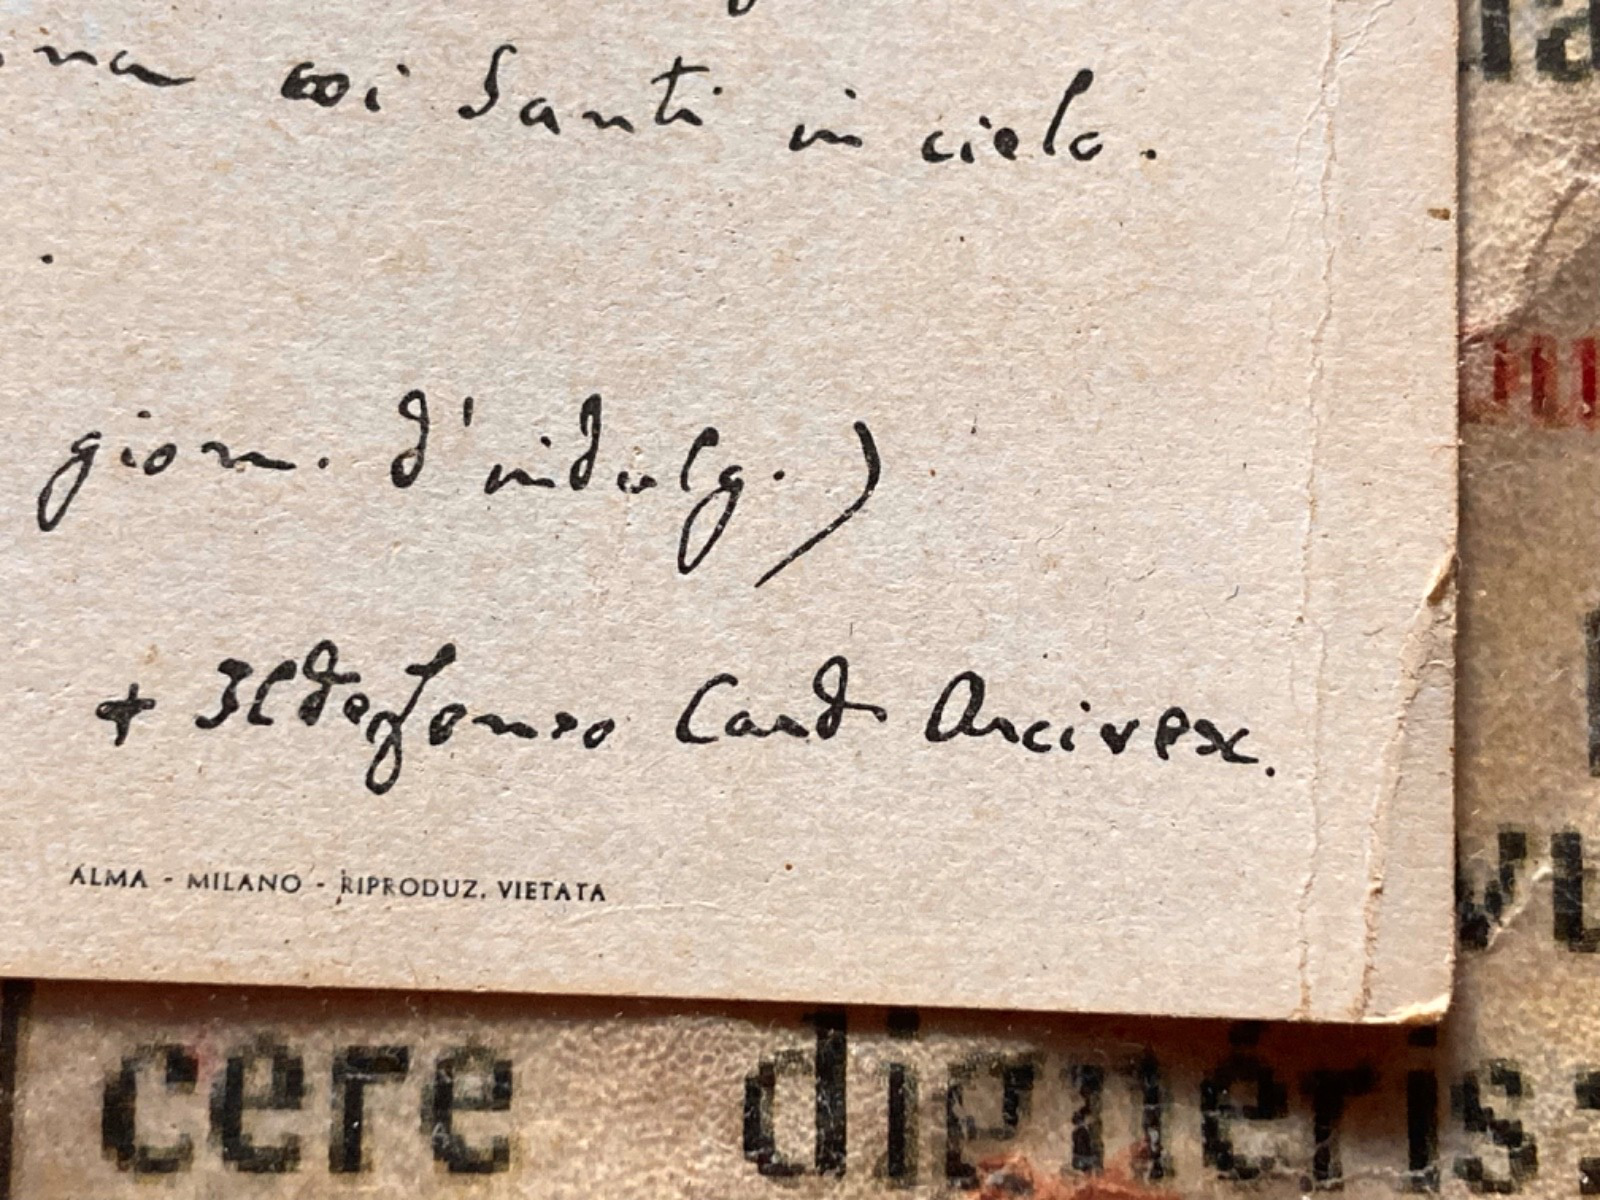 coi Santi in cielo.
giorn. d'indulg.)
+ Ildefonso Card Arcivex.
ALMA - MILANO - RIPRODUZ. VIETATA
cere dignéris